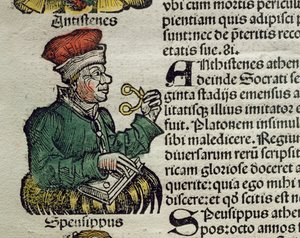 Antistenes
Speusippus
cum mortis pericul
pientiam quas adipisci p
sunt: nec de p̄teritis reco
etatis sue .81.
Ãthistenes athe
deinde Socrati se
ginta stadijs emensus a
litatisqꝫ illius imitator
fuit. Platonem insimul
sibi maledicere. Regiu
diuersarum rerū scripsit
ricam gloriose doceret a
querite: quia ego mihi
discere: et qd̄ scitis est no
Speusippus athe
spos: octo annos